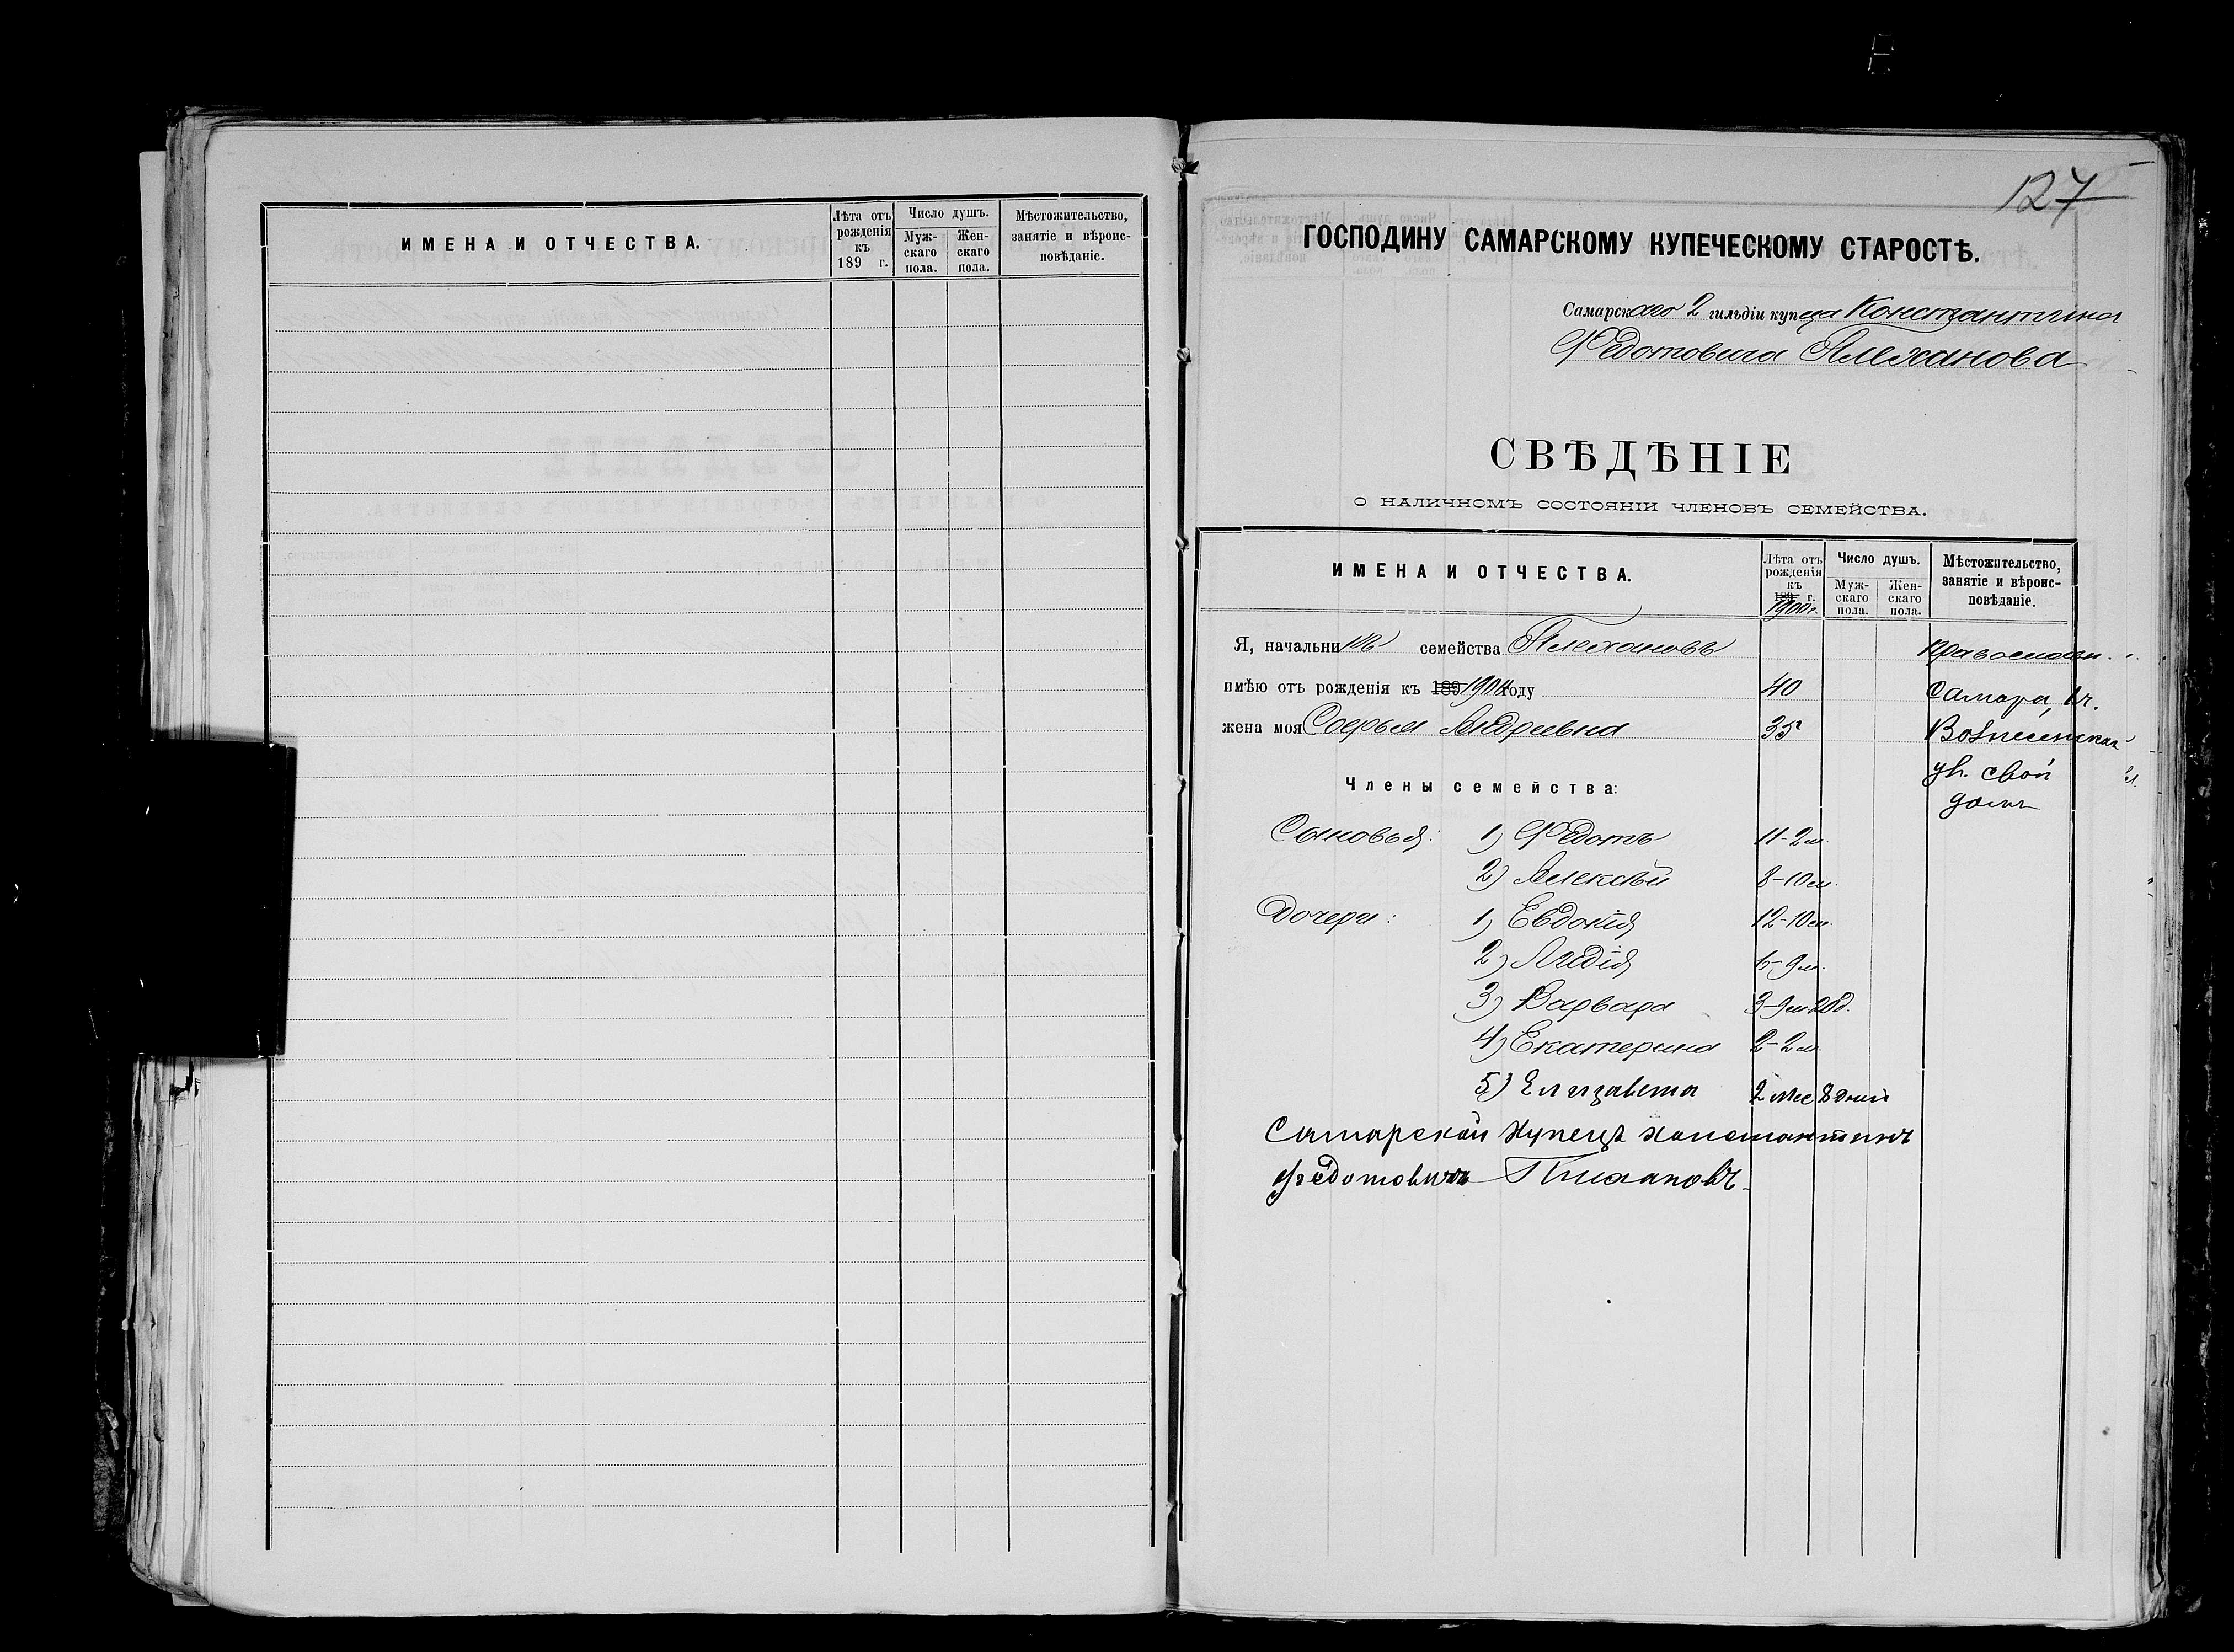 ИМЕНА И ОТЧЕСТВА.
Лѣта отъ рожденія къ 189 г.
Число душъ.
Мужскаго пола.
Женскаго пола.
Мѣстожительство, занятіе и вѣроисповѣданіе.
127
ГОСПОДИНУ САМАРСКОМУ КУПЕЧЕСКОМУ СТАРОСТѢ.
Самарскаго 2 гильдіи купца Константина
Федотовича Плеханова
СВѢДѢНІЕ
О НАЛИЧНОМЪ СОСТОЯНІИ ЧЛЕНОВЪ СЕМЕЙСТВА.
ИМЕНА И ОТЧЕСТВА.
Лѣта отъ рожденія къ 189 г. 1900 г.
Число душъ.
Мужскаго пола.
Женскаго пола.
Мѣстожительство, занятіе и вѣроисповѣданіе.
Я, начальникъ семейства Плехановъ Православн.
имѣю отъ рожденія къ 189 190 году 40 Самара, 1 ч.
жена моя Софья Андреевна 35 Вознесенская
Члены семейства: ул. свой
домъ
Сыновья: 1) Федотъ 11-2 м.
2) Алексѣй 8-10 м.
Дочери: 1) Евдокія 12-10 м.
2) Лидія 6-9 м.
3) Варвара 3-9 м. 20 д.
4) Екатерина 2-2 м.
5) Елизавета 2 мес 8 дней
Самарской Купецъ константинъ
федотовичъ Плехановъ